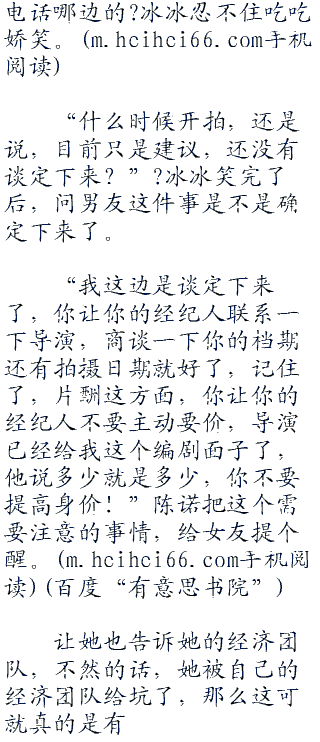 电话哪边的?冰冰忍不住吃吃
娇笑。(m.hcihci66.com手机
阅读)
“什么时候开拍，还是
说，目前只是建议，还没有
谈定下来？”?冰冰笑完了
后，问男友这件事是不是确
定下来了。
“我这边是谈定下来
了，你让你的经纪人联系一
下导演，商谈一下你的档期
还有拍摄日期就好了，记住
了，片酬这方面，你让你的
经纪人不要主动要价，导演
已经给我这个编剧面子了，
他说多少就是多少，你不要
提高身价！”陈诺把这个需
要注意的事情，给女友提个
醒。(m.hcihci66.com手机阅
读)(百度“有意思书院”)
让她也告诉她的经济团
队，不然的话，她被自己的
经济团队给坑了，那么这可
就真的是有